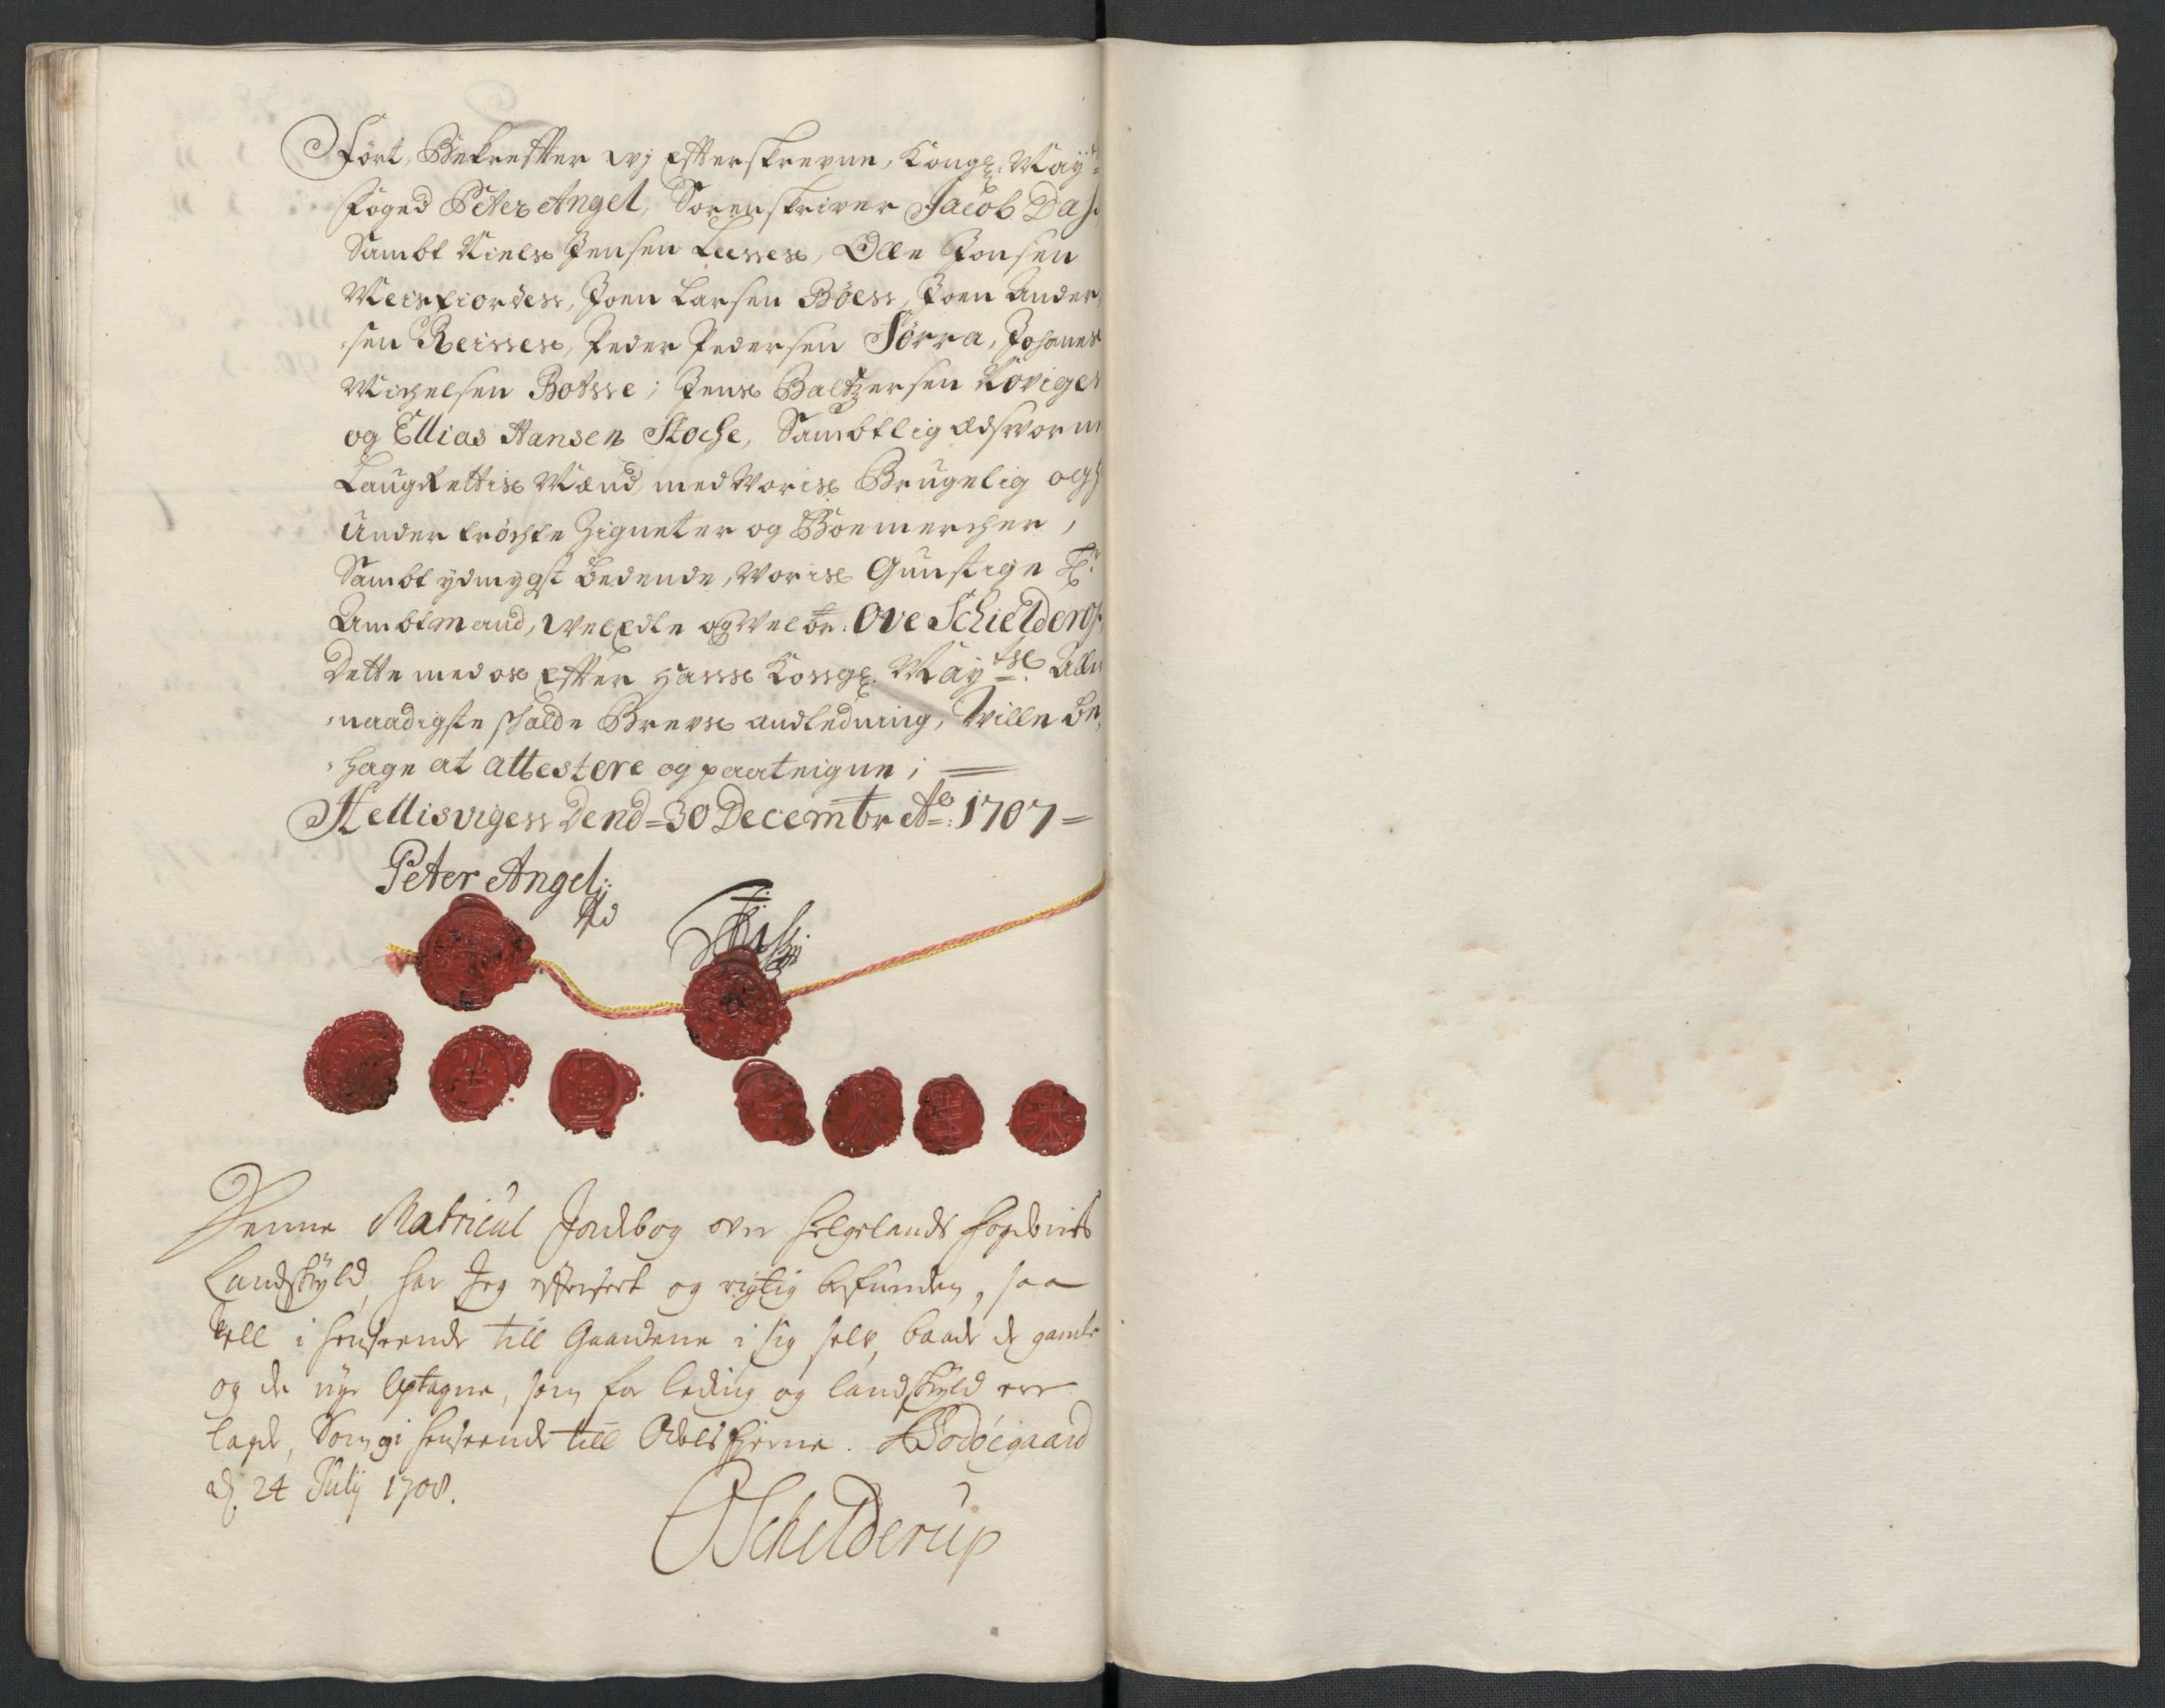 Ført, Bekrefter wj Efterskrevne, Kongl: May
foged Peter Angel, Sorenskriver Jacob
Sambt Niels Jensen Olle Jonsen
Meisfiorden, Joen Larsen Böen, Joen Ander
sen Reisen, Peder Pedersen Sörra, Johanes
Michelsen Jens Baltzersen
og Ellias Hansen Stoche, Sambtlig Edsworn
LaugRettis Mænd, med Voris Brugelig og
Under tröchte Zigneter og Boemercher,
Sambt ydmygst bedende, Voris Gunstige Hr:
Ambtmand, WelEdle og Welbr: Ove Schielderup
Dette med os Efter Hans Kongl. Maytz: Aller
naadigste Brevs andledning, Wille be
hage at attestere og paateigne;
Hellisvigen Dend 30 Decembr Ao: 1707
Peter Angel

Denne Matricul Jordbog over Helgelands fogderies
Landskyld, har Jeg efterseet og rigtig befunden, saa
vell i henseende till Gaardene i sig selv, baade de gamle
og de nye Optagne, som for leding og landskyld ere
lagde, Som og i henseende till Bodöegaard
d. 24 Julij 1708.
OSchelderup